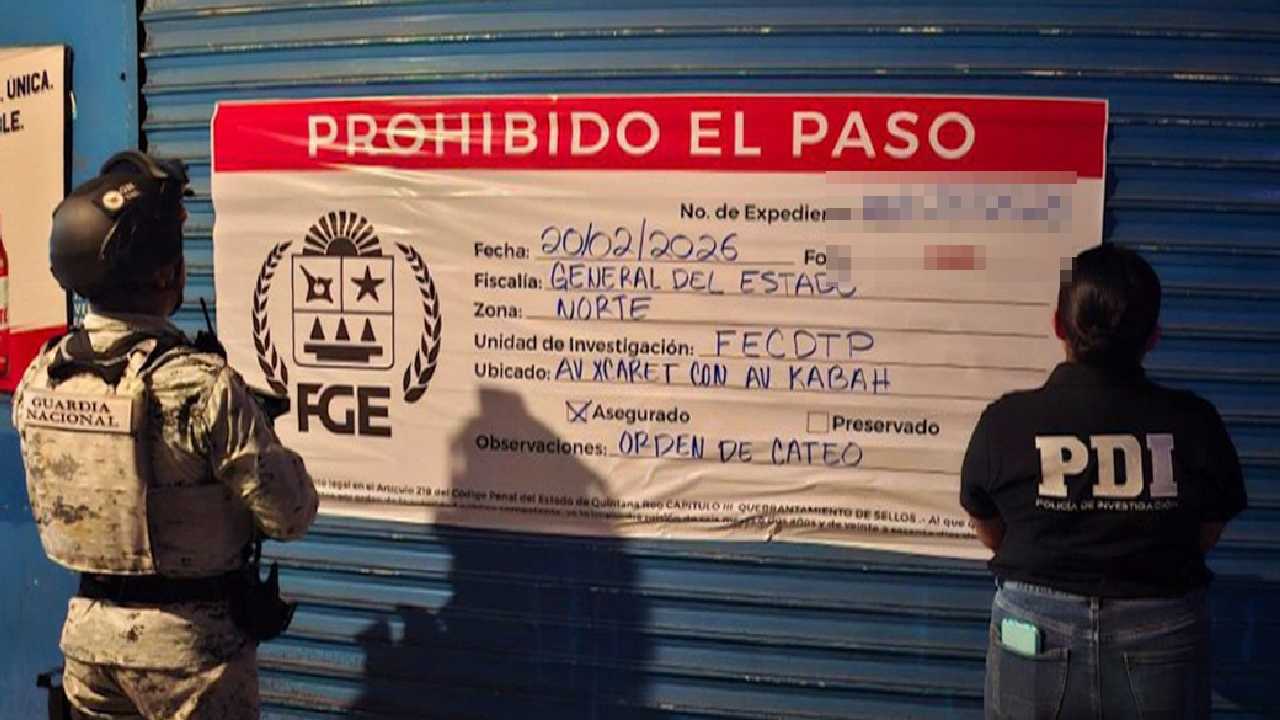 ÚNICA.
PROHIBIDO EL PASO
No. de Expedien
Fecha: 20/02/2026 Fo
Fiscalía: GENERAL DEL ESTADO
Zona: NORTE
Unidad de Investigación: FECDTP
Ubicado: AV XCARET CON AV KABAH
Asegurado Preservado
Observaciones: ORDEN DE CATEO
legal en el Artículo 218 del Código Penal del Estado de Quintana Roo CAPITULO III QUEBRANTAMIENTO DE SELLOS.- Al que
FGE
GUARDIA
NACIONAL
PDI
POLICÍA DE INVESTIGACIÓN